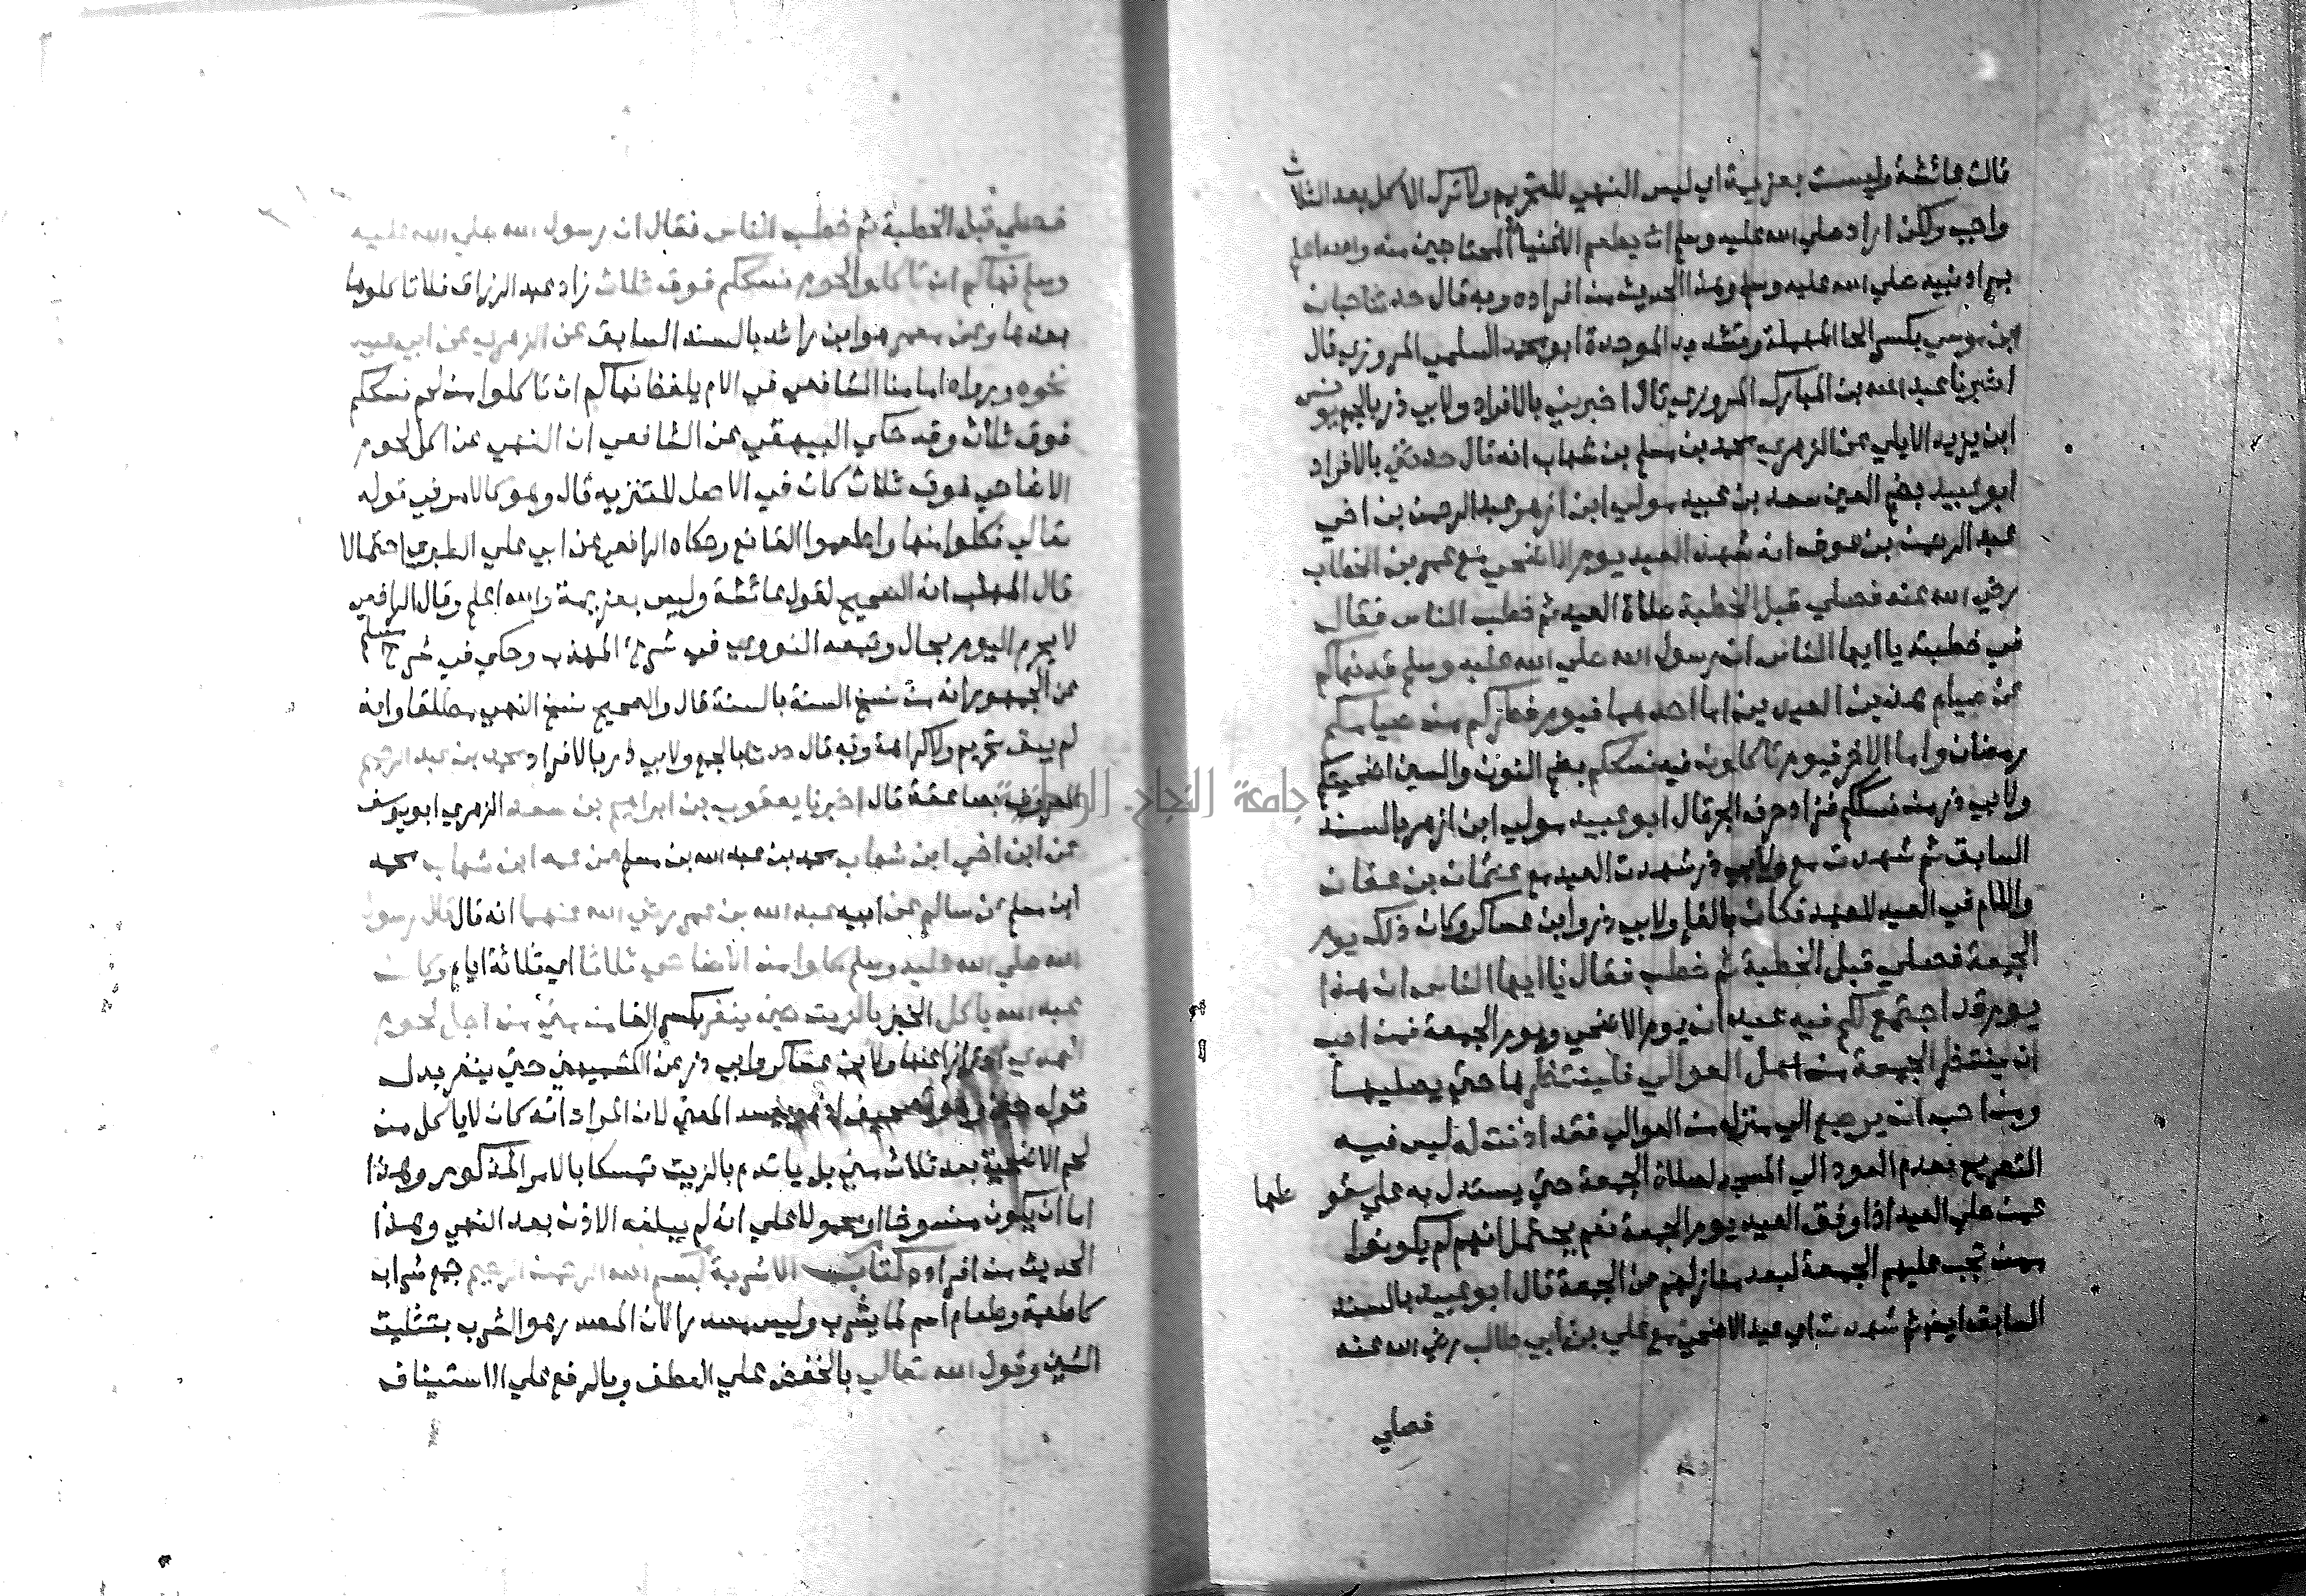 قالت عائشة وليست بعزيمة اي ليس النهي للتحريم ولا ترك الاكل بعد الثلاث
واجب ولكن اراد صلي الله عليه وسلم ان يطعم الاغنيا المحتاجين منه والله اعلم
بمراد نبيه صلي الله عليه وسلم وهذا الحديث من افراده وبه قال حدثنا حبان
بن موسي بكسر الحا المهملة وتشديد الموحدة ابو محمد السلمي المروزي قال
اخبرنا عبد الله بن المبارك المروزي قال اخبرني بالافراد ولابي ذر بالجمع يونس
ابن يزيد الايلي عن الزهري محمد بن مسلم بن شهاب انه قال حدثني بالافراد
ابو عبيد بضم العين سعد بن عبيد مولي ابن ازهر عبد الرحمن بن اخي
عبد الرحمن بن عوف انه شهد العيد يوم الاضحي مع عمر بن الخطاب
رضي الله عنه فصلي قبل الخطبة صلاة العيد ثم خطب الناس فقال
في خطبته يا ايها الناس ان رسول الله صلي الله عليه وسلم قد نهاكم
عن صيام هذين العيدين اما احدهما فيوم فطركم من صيامكم
رمضان واما الاخر فيوم تاكلون فيه نسككم بضم النون والسين اضحيتكم
ولابي ذر من نسككم فزاد حرف الجر قال ابو عبيد مولي ابن ازهر بالسند
السابق ثم شهدت مع ولابي ذر شهدت العيد مع عثمان بن عفان
واللام في العيد للعهد فكان بالفا ولابي ذر وابن عساكر وكان ذلك يوم
الجمعة فصلي قبل الخطبة ثم خطب فقال يا ايها الناس ان هذا
يوم قد اجتمع لكم فيه عيدان يوم الاضحي ويوم الجمعة فمن احب
ان ينتظر الجمعة من اهل العوالي فلينتظرها حتي يصليها
ومن احب ان يرجع الي منزله من العوالي فقد اذنت له ليس فيه
التصريح بعدم العود الي المسجد لصلاة الجمعة حتي يستدل به علي سقو طها
عمن صلي العيد اذا وفق العيد يوم الجمعة نعم يحتمل انهم لم يكونوا
ممن تجب عليهم الجمعة لبعد منازلهم عن الجمعة قال ابو عبيد بالسند
السابق ايضا ثم شهدت اي عيد الاضحي مع علي بن ابي طالب رضي الله عنه
فصلي
فصلي قبل الخطبة ثم خطب الناس فقال ان رسول الله صلي الله عليه
وسلم نهاكم ان تاكلوا لحوم نسككم فوق ثلاث زاد عبد الرزاق فلا تاكلوها
بعدها وعن معمر هو ابن راشد بالسند السابق عن الزهري عن ابي عبيد
نحوه ورواه امامنا الشافعي في الام بلفظ نهاكم ان تاكلوا من لحم نسككم
فوق ثلاث وقد حكي البيهقي عن الشافعي ان النهي عن اكل لحوم
الاضاحي فوق ثلاث كان في الاصل للتنزيه قال وهو كالامر في قوله
تعالي فكلوا منها واطعموا القانع وحكاه الرافعي عن ابي علي الطبري احتمالا
قال المهلب انه الصحيح لقول عائشة وليس بعزيمة والله اعلم وقال الرافعي
لا يحرم اليوم بحال وتبعه النووي في شرح المهذب وحكي في شرح مسلم
عن الجمهور انه من نسخ السنة بالسنة قال والصحيح نسخ النهي مطلقا وانه
لم يبق تحريم ولا كراهة وبه قال حدثنا بالجمع ولابي ذر بالافراد محمد بن عبد الرحيم
المعروف بصاعقة قال اخبرنا يعقوب بن ابراهيم بن سعد الزهري ابو يوسف
عن ابن اخي ابن شهاب محمد بن عبد الله بن مسلم عن عمه ابن شهاب محمد
ابن مسلم عن سالم عن ابيه عبد الله بن عمر رضي الله عنهما انه قال قال رسول
الله صلي الله عليه وسلم كلوا من الاضاحي ثلاثا اي ثلاثة ايام وكان
عبد الله ياكل الخبز بالزيت حين ينفر بكسر الفا من مني من اجل لحوم
الهدي احترازا عنها ولابن عساكر وابي ذر عن الكشميهني حتي ينفر بدل
قوله حين وهو تصحيف لانه يفسد المعني لان المراد انه كان لا ياكل من
لحم الاضحية بعد ثلاث مني بل ياتدم بالزيت تمسكا بالامر المذكور وهذا
اما ان يكون منسوخا او محمولا علي انه لم يبلغه الاذن بعد النهي وهذا
الحديث من افراده كتاب الاشربة بسم الله الرحمن الرحيم جمع شراب
كاطعمة وطعام اسم لما يشرب وليس مصدرا لان المصدر هو الشرب بتثليث
الشين وقول الله تعالي بالخفض علي العطف وبالرفع علي الاستيناف
جامعة النجاح الوطنية